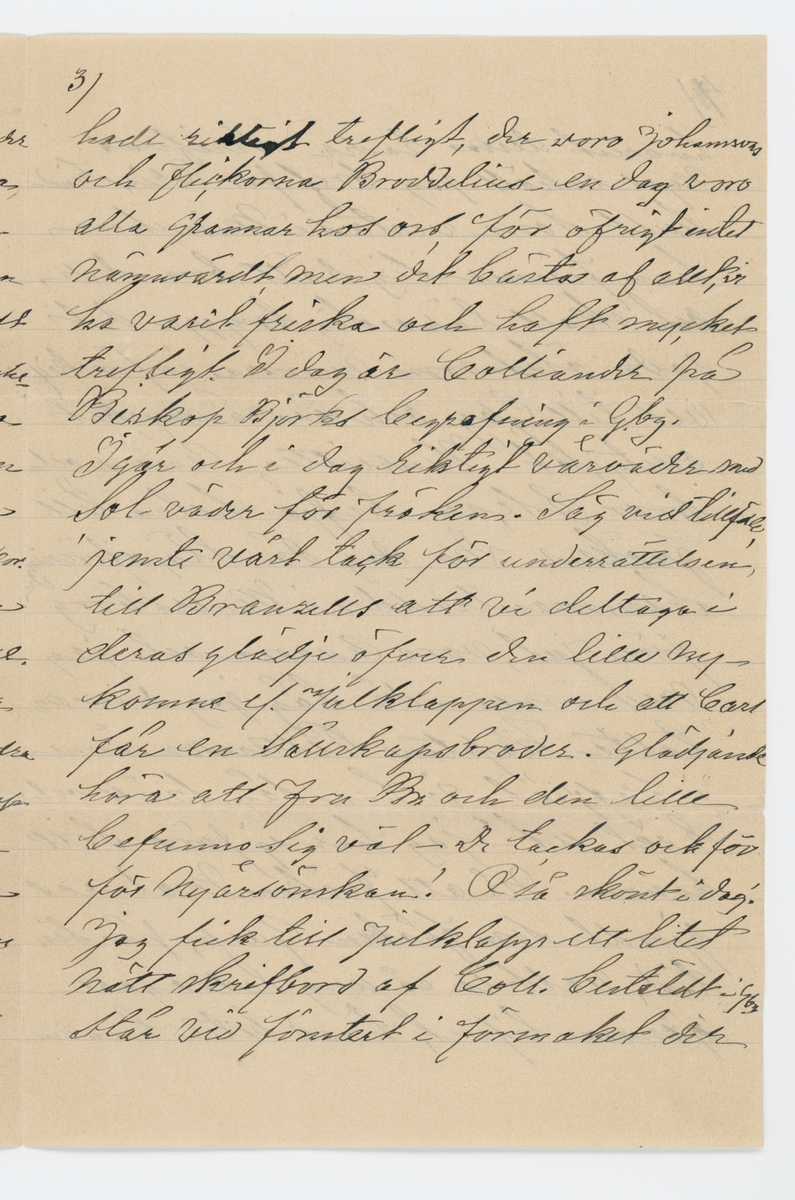 3)
hade riktigt trefligt, der voro Johanssons
och flickorna Broddelius en dag voro
alla grannar hos oss för öfrigt intet
nämnvärdt, men det bästa af allt, vi
ha varit friska och haft mycket
trefligt. I dag är Colliander på
Biskop Björks begrafning i Gbg.
Igår och i dag riktigt vårväder med
Sol- väder för fröken. Säg vid tillfälle,
jemte vårt tack för underrättelsen,
till Branzells att vi deltaga i
deras glädje öfver den lille ny-
komne el. Julklappen och att Carl
får en Sällskapsbroder. Glädjande
höra att Fru Br och den lille
befunno Sig väl - Vi tackas ock för
för Nyårsönskan! O så skönt i dag!
Jag fick till Julklapp ett litet
nätt skrifbord af Coll. bestäldt i Gbg
står vid fönstert i förmaket der